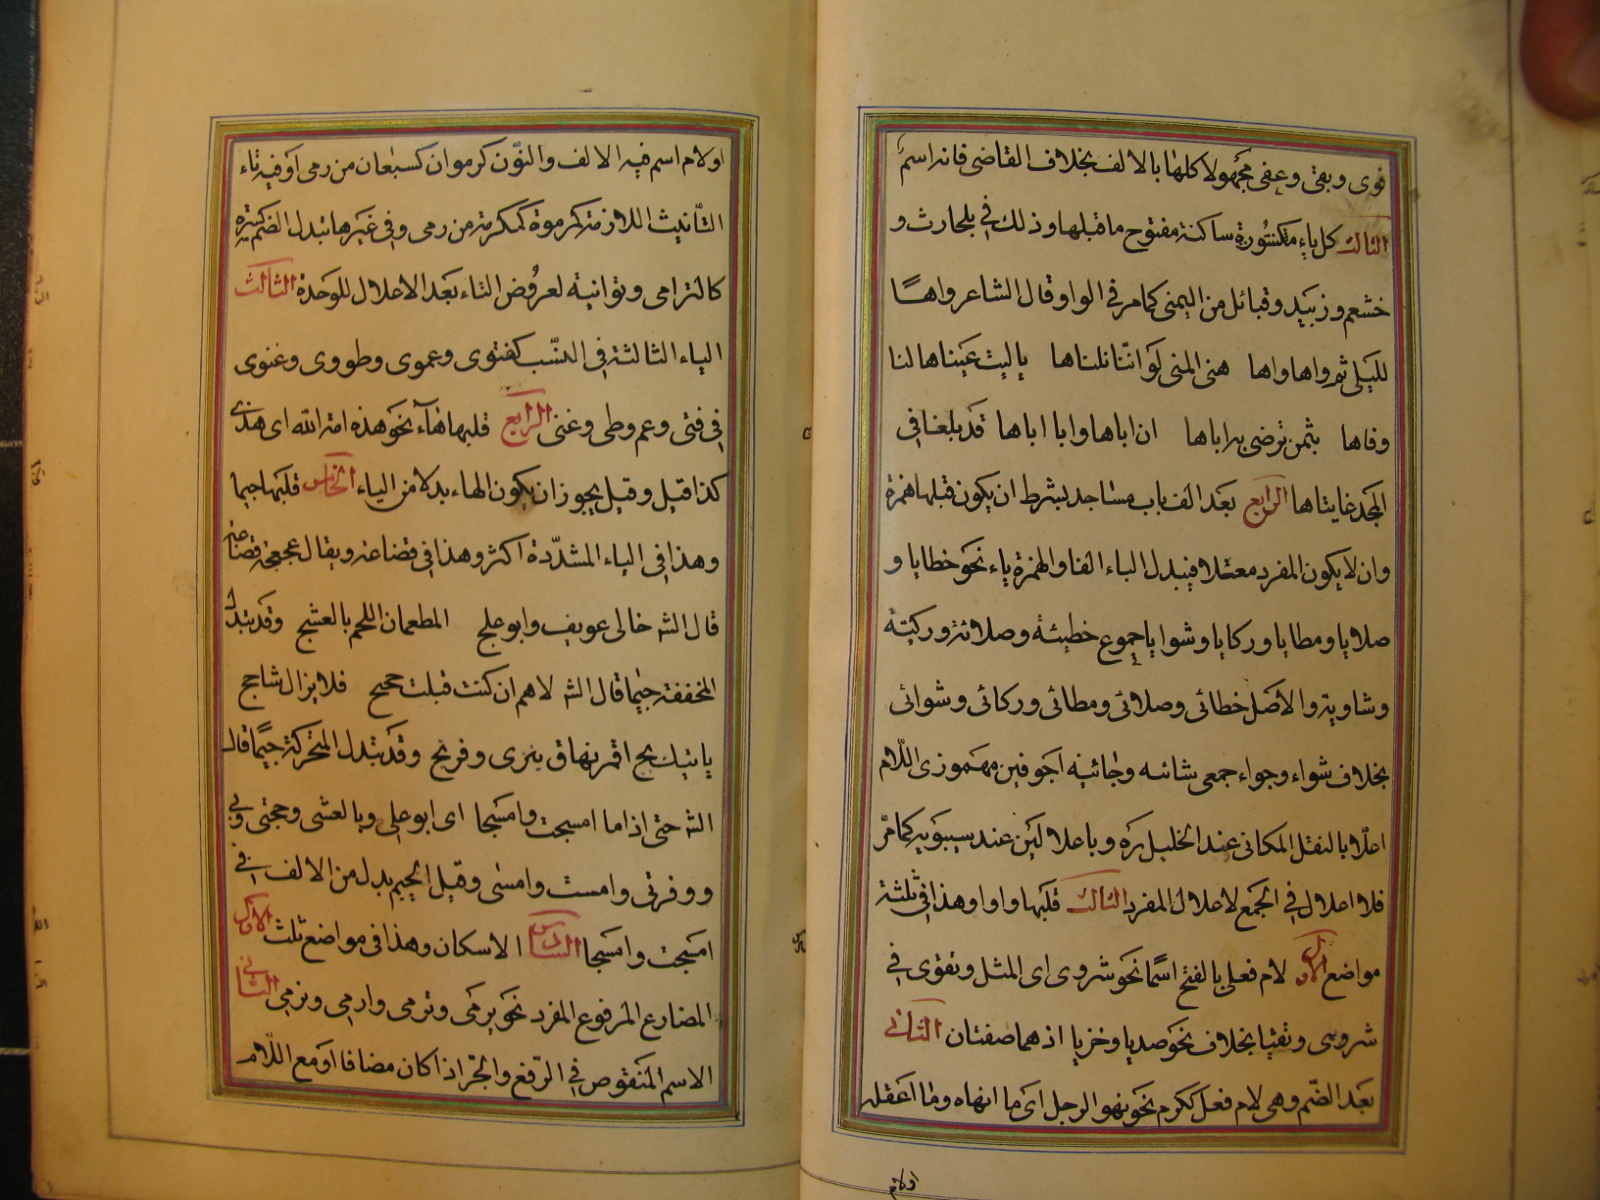 قوى وبقى وعفى مجهولا كلها بالالف بخلاف القاضى فانه اسم
الثالث كل ياء مكتوبة ساكنة مفتوح ما قبلها وذلك فى بلحارث و
خشعم وزبيد وقبائل من اليمنى كما مر فى الواو قال الشاعر واها
لليلى ثم واها واها هى المنى لو اننا نلناها يا ليت عيناها لنا
وفاها بثمن نرضى به اباها ان اباها وابا اباها قد بلغا فى
المجد غايتاها الرابع بعد الف باب مساجد بشرط ان يكون قبلها همزة
وان لا يكون المفرد معتلا فيبدل الياء الفا والهمزة ياء نحو خطايا و
صلايا ومطايا وركايا وشوايا جموع خطيئة وصلائة وركية
وشاوية والاصل خطائى وصلائى ومطائى وركائى وشوائى
بخلاف شواء وجواء جمعى شائية وجائية اجوفين مهموزى اللام
اعلا بالنقل المكانى عند الخليل ره وباعلالين عند سيبويه كما مر
فلا اعلال فى الجمع لاعلال المفرد الثالث قلبها واوا وهذا فى ثلثة
مواضع الاول لام فعلى بالفتح اسما نحو شروى اى المثل وتقوى فى
شروى وتقيا بخلاف نحو صديا وخزيا اذ هما صفتان الثانى
بعد الضم وهى لام فعل ككرم نحو نهو الرجل اى ما انهاه وما اعقله
اولام
او لام اسم فيه الالف والنون كرموان كسبعان من رمى او فيه تاء
التأنيث اللازمة كرموة كمكرمة من رمى وفى غيرها تبدل الضم كسرة
كالترامى وتوانية لعروض التاء بعد الاعلال للوحدة الثالث
الياء الثالثة فى النسب كفتوى وعموى وطووى وغنوى
فى فتى وعم وطى وغنى الرابع قلبها هاء نحو هذه امة الله اى هذى
كذا قيل وقيل يجوز ان يكون الهاء بدلا من الياء الخامس قلبها جيما
وهذا فى الياء المشددة اكثر وهذا فى قضاعة ويقال عجعجة قضاعة
قال الشـ خالى عويف وابو علج المطعمان اللحم بالعشج وقد يبدل
المخففة جيما قال الشـ لاهم ان كنت قبلت حجج فلا يزال شاحج
ياتيك بج اقمر نهاق ينزى وفرتج وقد تبدل المتحركة جيما قال
الشـ حتى اذا ما امسجت وامسجا اى ابو على وبالعشى وحجتى وبى
و وفرتى وامست وامسى وقيل الجيم بدل من الالف فى
امسجت وامسجا السادس الاسكان وهذا فى مواضع ثلث الاول
المضارع المرفوع المفرد نحو يرمى وترمى وارمى ونرمى الثانى
الاسم المنقوص فى الرفع والجر اذا كان مضافا او مع اللام